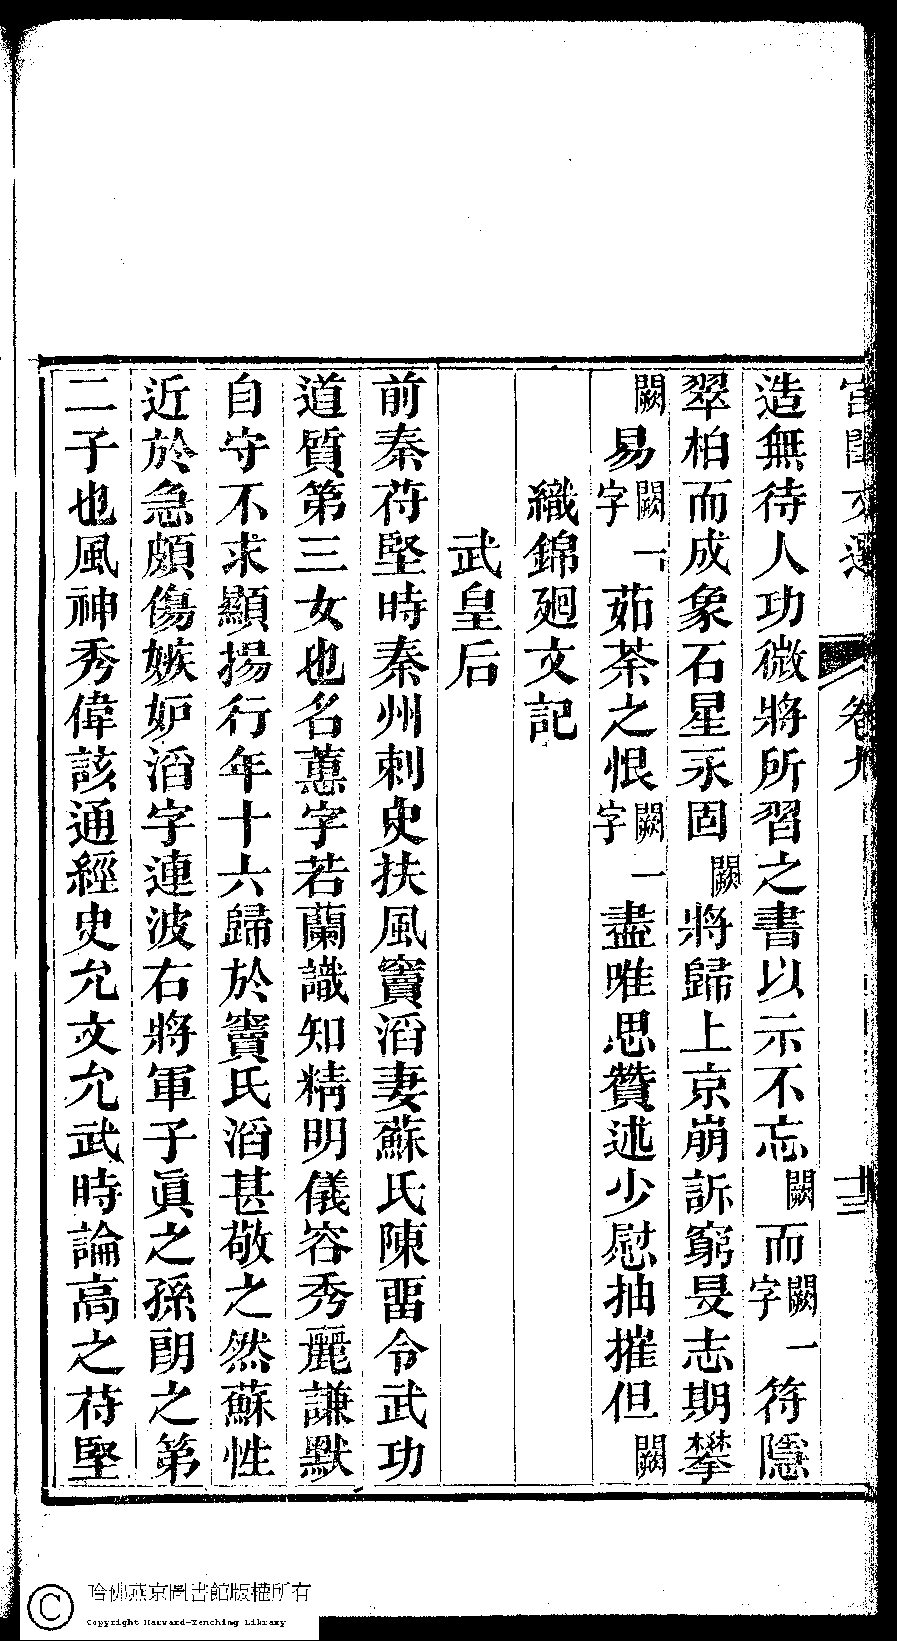 宮閨文選 卷九 十三
造無待人功微將所習之書以示不忘闕而闕一字符隱
翠柏而成象石星永固闕將歸上京崩訴窮旻志期攀
闕易闕一字茹荼之恨闕一字盡唯思贊述少慰抽摧但闕
織錦廻文記
武皇后
前秦苻堅時秦州刺史扶風竇滔妻蘇氏陳畱令武功
道質第三女也名蕙字若蘭識知精明儀容秀麗謙默
自守不求顯揚行年十六歸於竇氏滔甚敬之然蘇性
近於急頗傷嫉妒滔字連波右將軍子眞之孫朗之第
二子也風神秀偉該通經史允文允武時論高之苻堅
哈佛燕京圖書館版權所有
Copyright Harvard-Yenching Library